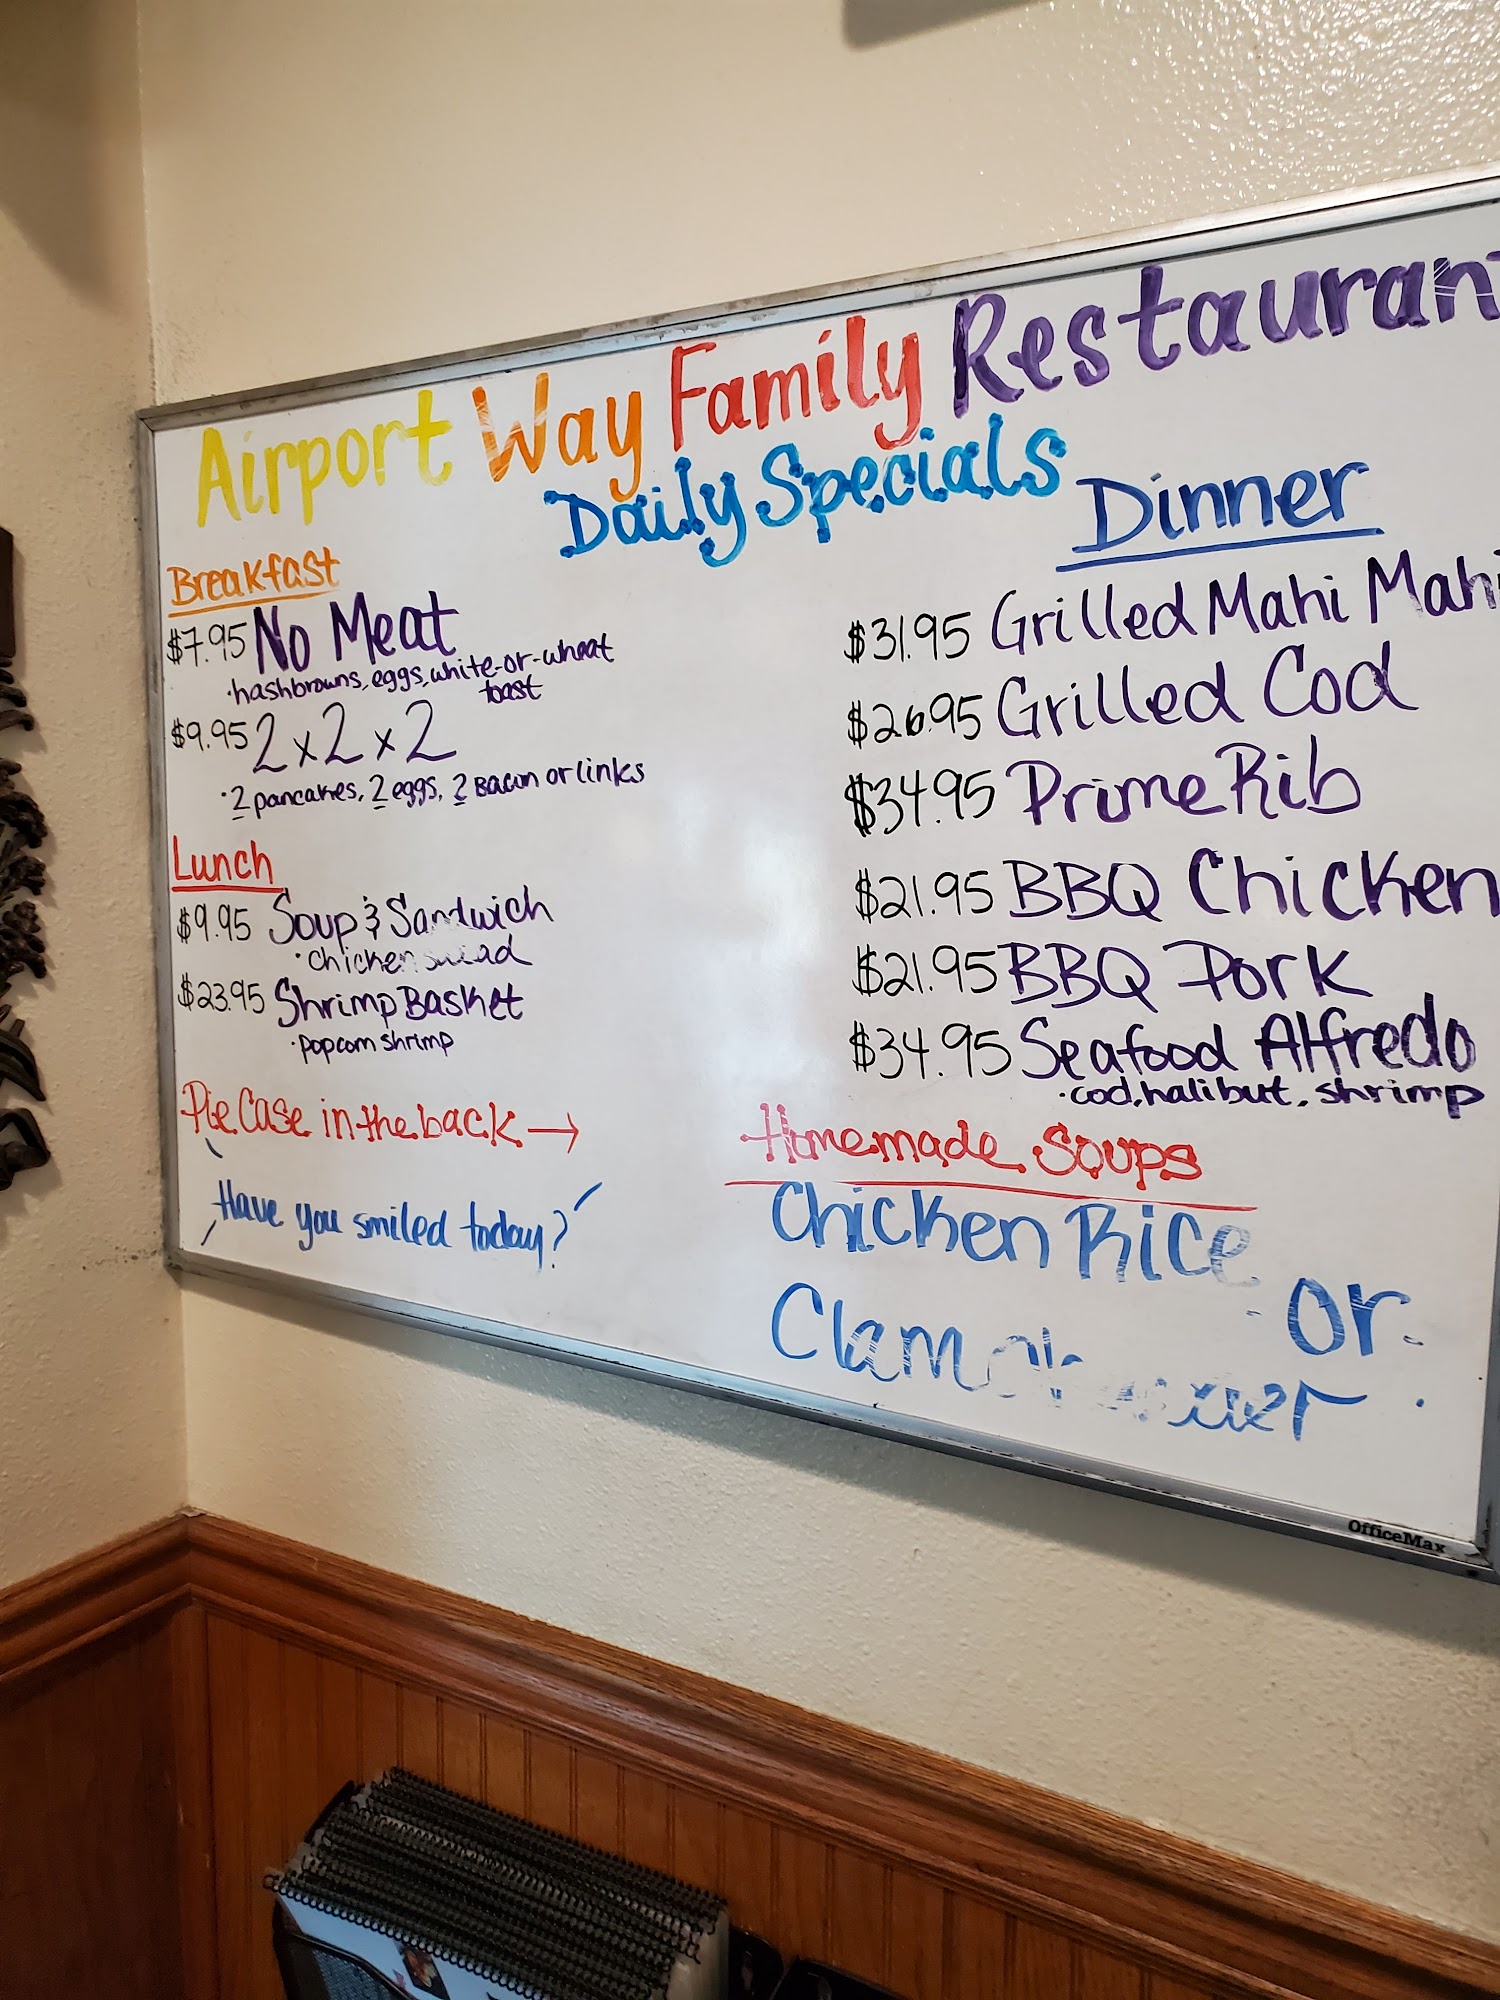 Airport Way Family Restaurant
Daily Specials
Breakfast
$7.95 No Meat
·hashbrowns, eggs, white-or-wheat
toast
$9.95 2 x 2 x 2
·2 pancakes, 2 eggs, 2 Bacon or links
Lunch
$9.95 Soup & Sandwich
·chicken salad
$23.95 Shrimp Basket
·popcorn shrimp
Pie Case in the back →
Have you smiled today?
Dinner
$31.95 Grilled Mahi Mahi
$26.95 Grilled Cod
$34.95 Prime Rib
$21.95 BBQ Chicken
$21.95 BBQ Pork
$34.95 Seafood Alfredo
·cod, halibut, shrimp
Homemade Soups
Chicken Rice
or
Clam
OfficeMax